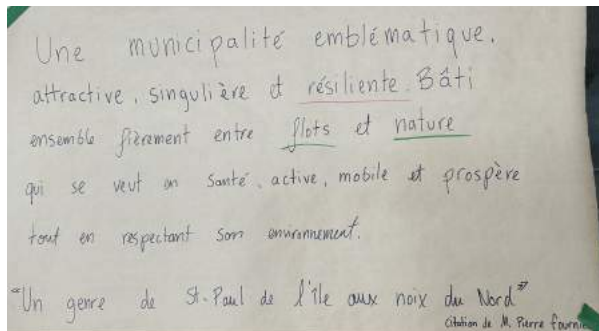 Une municipalité emblématique.
attractive, singulière et résiliente. Bâti
ensemble fièrement entre flots et nature
qui se veut en santé, active, mobile et prospère
tout en respectant son environnement.
"Un genre de St-Paul de l'île aux noix du Nord"
citation de M. Pierre Fournie